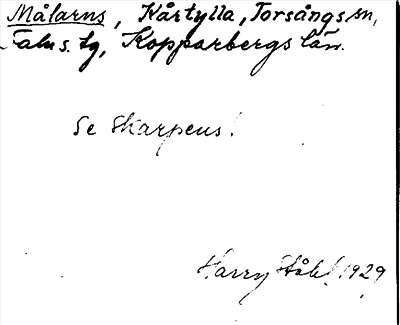 Målarns, Kårtylla, Torsångs sn,
Falu s. tg, Kopparbergs län.
Se Skarpens!
Harry Ståhl 1929